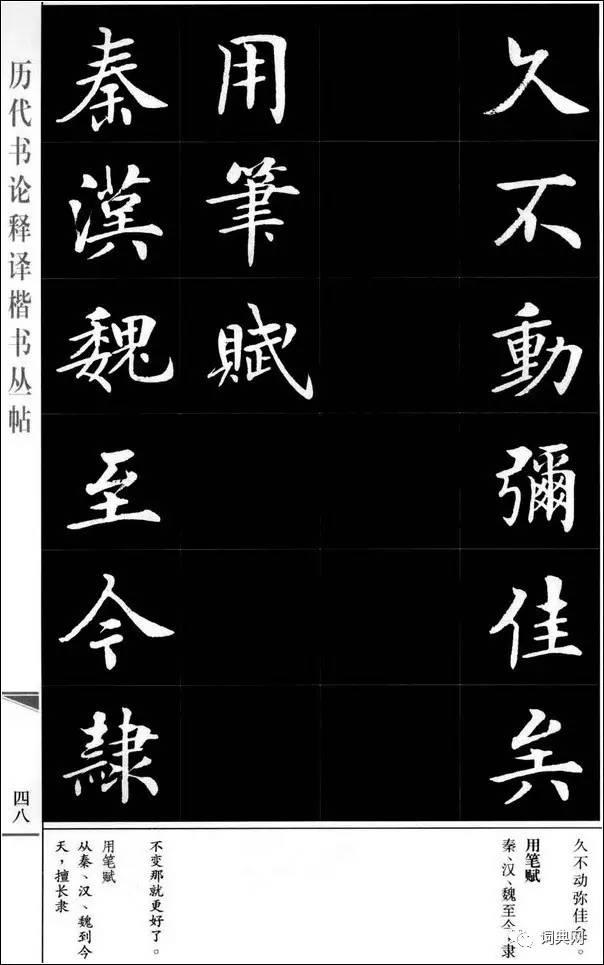 久不動彌佳矣
用筆賦
秦漢魏至今隸
历代书论释译楷书丛帖
四八
久不动弥佳矣。
用笔赋
秦、汉、魏至今,隶
不变那就更好了。
用笔赋
从秦、汉、魏到今
天,擅长隶
词典网